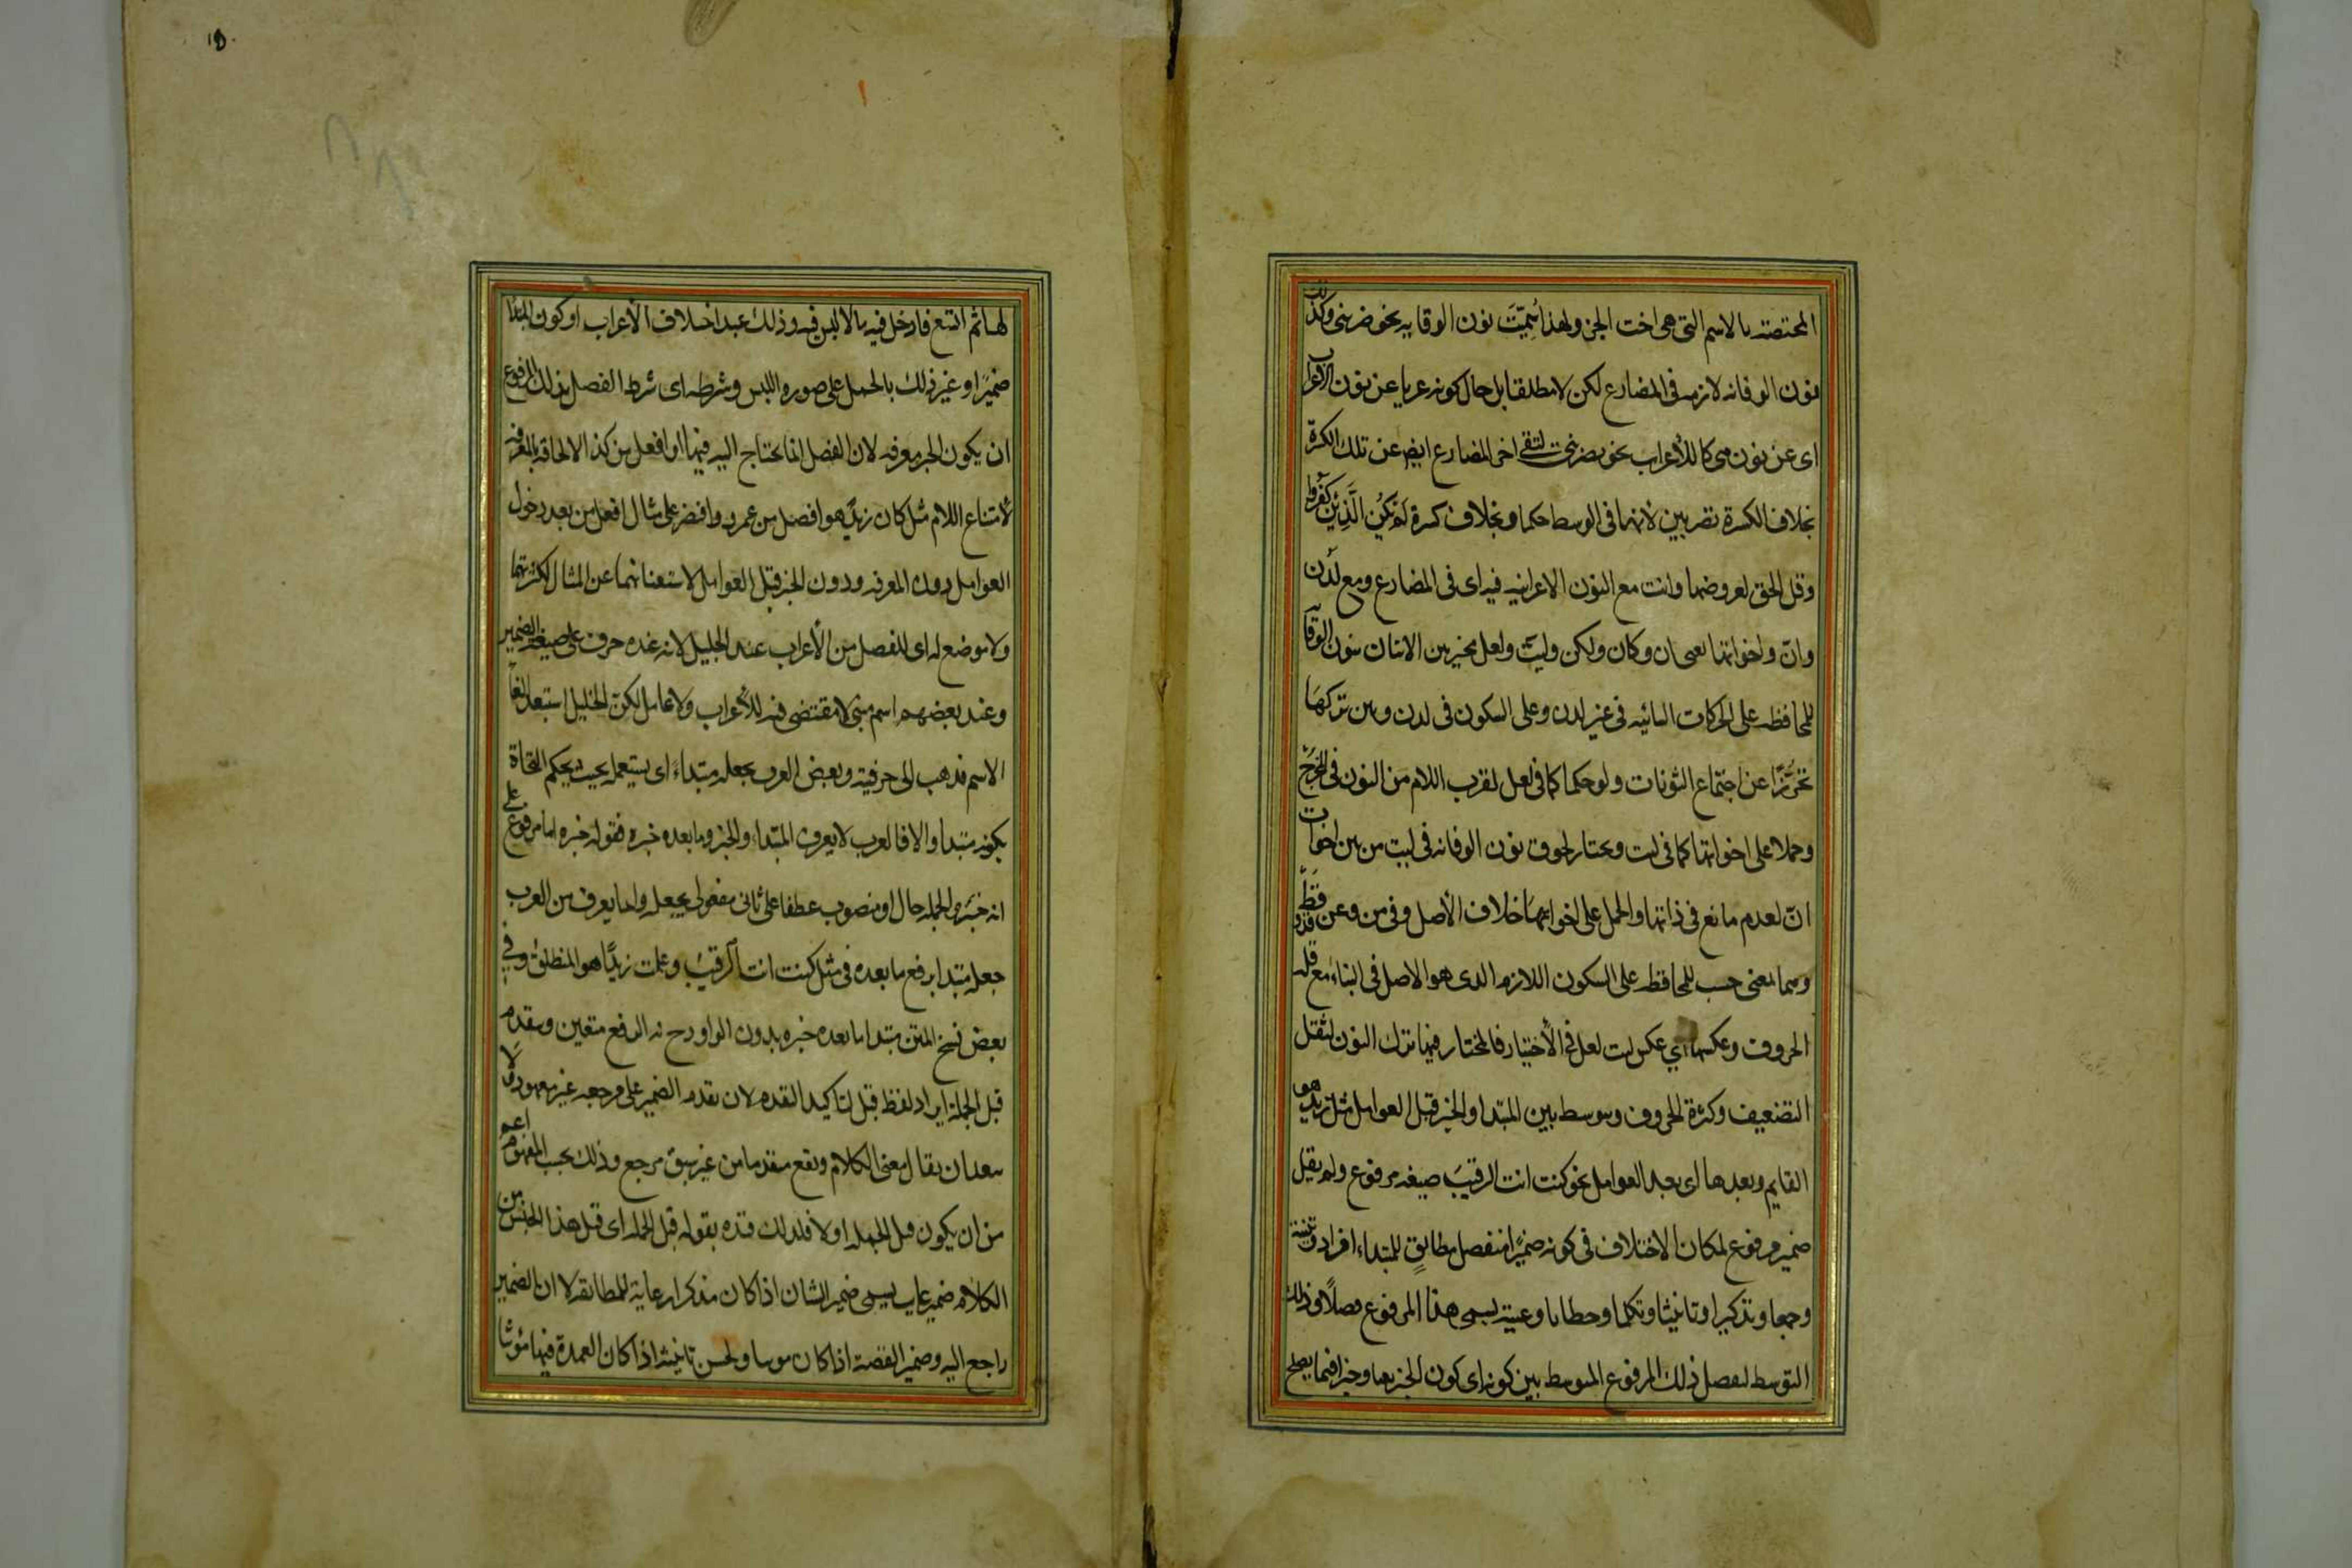 المختصة بالاسم التى هى اخت الجر ولهذا سُمِّيَت نون الوقايه نحو ضربنى وكذلك
نون الوقايه لازمه فى المضارع لكن لا مطلقا بل حال كونه عريا عن نون الاعراب
اى عن نون هى كاللأعراب نحو يضربنى لتقى اخر المضارع ايض عن تلك الكسرة
بخلاف الكسرة تضربين لانها فى الوسط حكما وبخلاف كسرة لَم يَكُنِ الَّذِيْنَ كَفَرُوا
وقل الحق لعروضها وانت مع النون الاعرابيه فيه اى فى المضارع ومع لدن
وانّ واخواتها يعنى ان وكان ولكن وليت ولعل مخير بين الاتيان بنون الوقايه
للمحافظه على الحركات البنائيه فى غير لدن وعلى السكون فى لدن وبين تركها
تحرّزًا عن اجتماع النونات ولو حكما كما فى لعل لقرب اللام من النون فى المخرج
وحملا على اخواتها كما فى ليت ويختار لحوق نون الوقايه فى ليت من بين اخوات
انّ لعدم مانع فى ذاتها والحمل على اخواتها خلاف الأصل وفى من وعن وقد وقط
وهما بمعنى حسب للمحافظه على السكون اللازم الذى هو الاصل فى البناء مع قلة
الحروف وعكسها اي عكس ليت لعل فى الأختيار فالمختار فيها ترك النون لثقل
التضعيف وكثرة الحروف ويتوسط بين المبتدا والخبر قبل العوامل مثل زيد هو
القايم وبعدها اى بعد العوامل نحو كنت انت الرقيبَ صيغه مرفوع ولم يقل
ضمير مرفوع لمكان الاختلاف فى كونه ضميرًا منفصل مطابقٍ للمبتداء افرادا وتثنية
وجمعا وتذكيرا وتانيثا وتكلما وخطابا وغيبة يسمى هذا المرفوع فصلاً وذلك
التوسط لفصل ذلك المرفوع المتوسط بين كونه اى كون الخبر نعتا وخبرا فيما يصلح
لهما ثم اتسع فادخل فيه بالا لبس فيه وذلك عند اختلاف الأعراب او كون المبتدا
ضميرًا وغير ذلك بالحمل على صوره اللبس وشرطه اى شرط الفصل بذلك المرفوع
ان يكون الخبر معرفه لان الفصل انما يحتاج اليه فيها او افعل من كذا لالحاقه بالمعرفه
لأمتناع اللام مثل كان زيدٌ هو افضل من عمرو واقتصر على مثال افعل من بعد دخول
العوامل دون المعرفه ودون الخبر قبل العوامل لاستغنائهما عن المثال لكثرتهما
ولا موضع له اى للفصل من الأعراب عند الخليل لانه عنده حرف على صيغه الضمير
وعند بعضهم اسم مبنى لا مقتضى فيه للأعراب ولا عامل لكن الخليل استبعد الغا
الاسم فذهب الى حرفيته وبعض العرب يجعله مبتداءً اى يستعمله بحيث يحكم النحاة
بكونه مبتدا والا فالعرب لا يعرف المبتداء والخبر وما بعده خبره فقوله خبره اما مرفوع على
انه خبر والجمله حال او منصوب عطفا على ثانى مفعولى يجعله وانما يعرف من العرب
جعله مبتدا برفع ما بعده فى مثل كنت انت الرقيبُ وعلمت زيدًا هو المنطلق وفى
بعض نسخ المتن مبتدا ما بعده خبره بدون الواو وح فالرفع متعين ويتقدم
قبل الجملة ايراد لفظ قبل لتاكيد التقدم لان تقدم الضمير على مرجعه غير معهود ولا
يبعد ان يقال معنى الكلام ويقع متقدما من غير سبق مرجع وذلك بحسب المفهوم اعم
من ان يكون قبل الجمله او لا فلذلك قيده بقوله قبل الجمله اى قبل هذا الجنس من
الكلام ضمير غايب يسمى ضمير الشان اذا كان مذكرا رعاية للمطابقه لا ان الضمير
راجع اليه وضمير القصة اذا كان مونثا ويحسن تانيثه اذا كان العمدة فيها مؤنثا